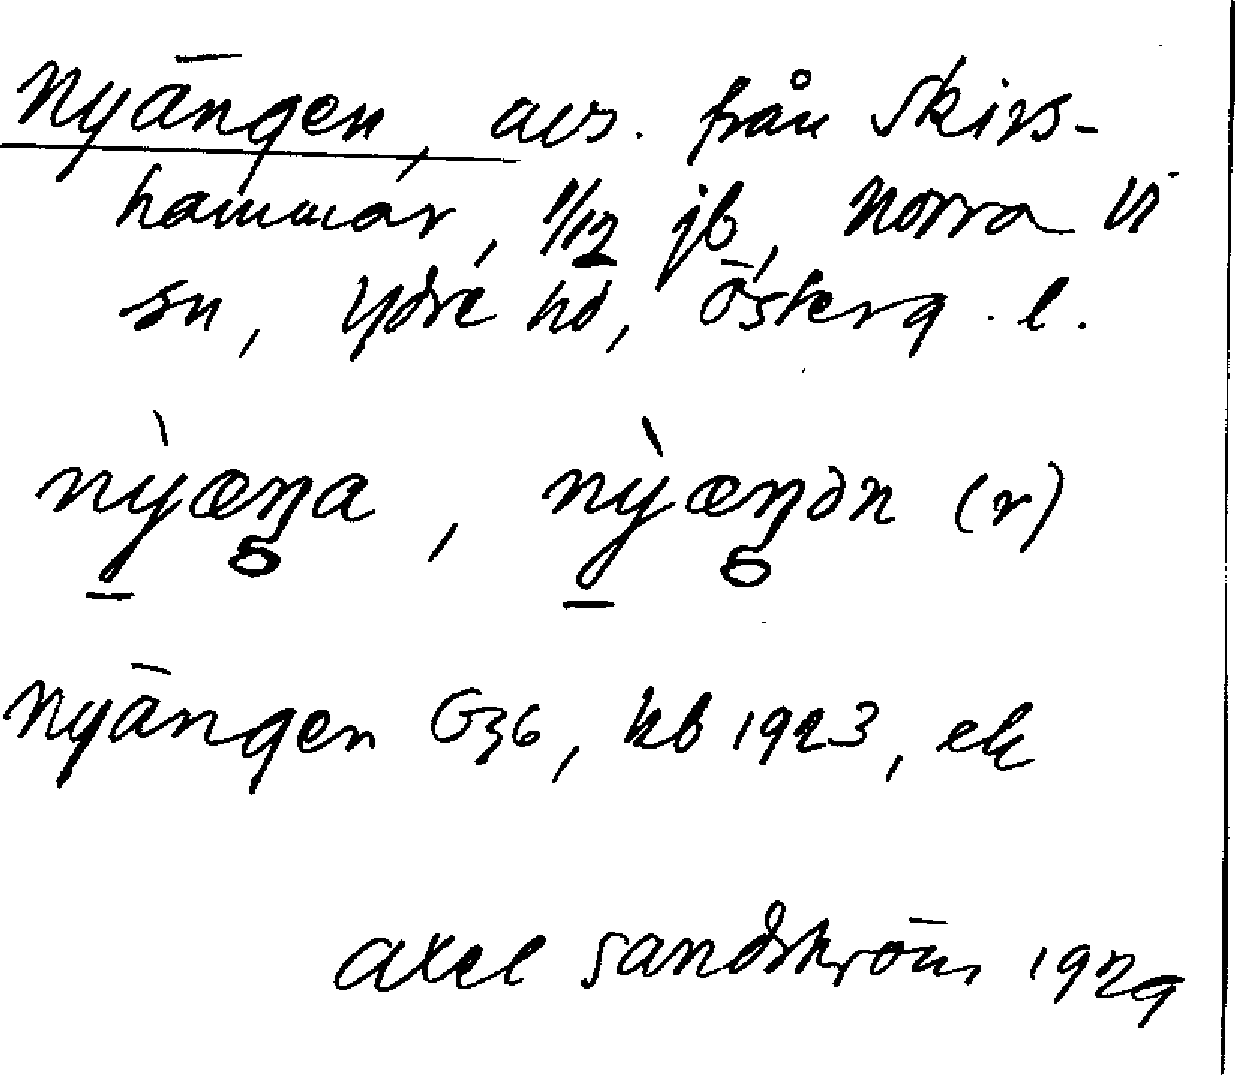 Nyängen, avs. från Skirs-
hammar, 1/12 jb, Norra Vi
sn, Ydre hd, Österg. l.
nỳæŋa, nỳæŋən (r)
Nyängen G36, kb 1923, ek
Axel Sandström 1929